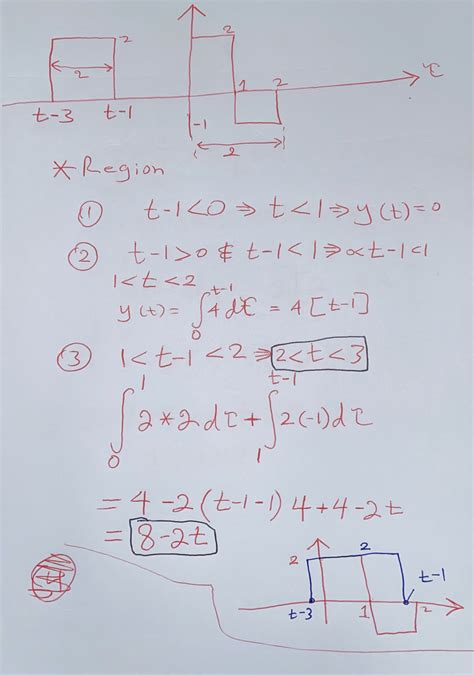 2 2 2
2 1 2 τ
t-3 t-1 -1 2
* Region
① t-1<0 ⇒ t<1 ⇒ y(t)=0
② t-1>0 & t-1<1 ⇒ 0<t-1<1
1<t<2
y(t) = ∫₀^{t-1} 4 dτ = 4[t-1]
③ 1<t-1<2 ⇒ 2<t<3
∫₀^1 2*2 dτ + ∫₁^{t-1} 2(-1) dτ
= 4 - 2(t-1-1) 4+4-2t
= 8-2t
2 2 t-1
t-3 1 2